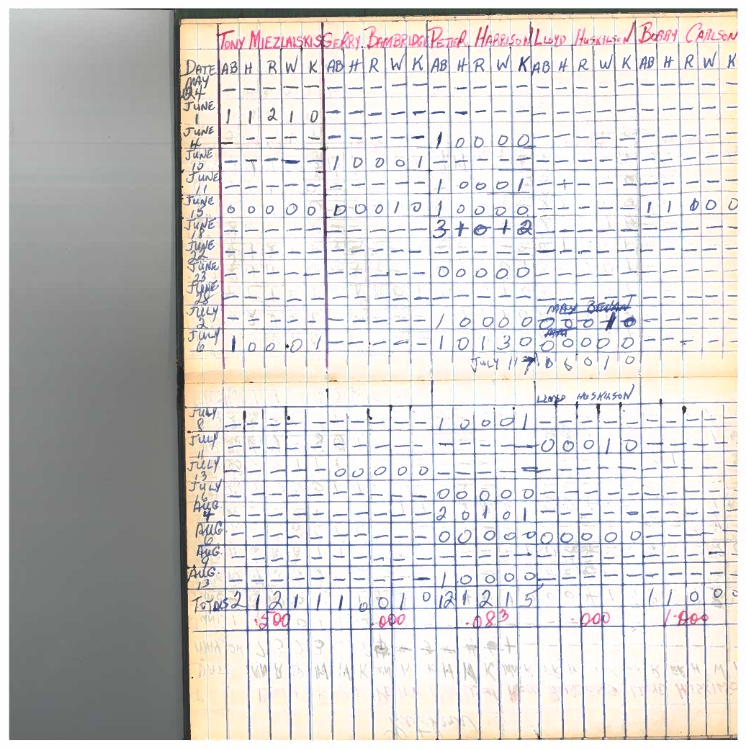 TONY MIEZLAISKIS GERRY BAMBRIDGE PETER HARRISON LLOYD HUSKILSON BOBBY CARLSON
DATE AB H R W K AB H R W K AB H R W K AB H R W K AB H R W K
MAY 24 — — — — — — — — — — — — — — — — — — — — — — — —
JUNE 1 1 1 2 1 0 — — — — — — — — — — — — — — — — — — —
JUNE 4 — — — — — — — — — — 1 0 0 0 0 — — — — — — — — —
JUNE 10 — — — — — 1 0 0 0 1 — — — — — — — — — — — — — —
JUNE 11 — — — — — — — — — — 1 0 0 0 1 — — — — — — — — —
JUNE 15 0 0 0 0 0 0 0 0 1 0 1 0 0 0 0 — — — — — 1 1 0 0 0
JUNE 18 — — — — — — — — — — 3 1 0 1 2 — — — — — — — — —
JUNE 22 — — — — — — — — — — — — — — — — — — — — — — — —
JUNE 23 — — — — — — — — — — 0 0 0 0 0 — — — — — — — — —
JUNE 28 — — — — — — — — — — — — — — — — — — — — — — — —
JULY 2 — — — — — — — — — — 1 0 0 0 0 0 0 0 1 0 — — — —
JULY 6 1 0 0 0 1 — — — — — 1 0 1 3 0 0 0 0 0 0 — — — —
JULY 11 0 0 0 1 0
LLOYD HUSKILSON
JULY 8 — — — — — — — — — — 1 0 0 0 1 — — — — — — — — —
JULY 11 — — — — — — — — — — — — — — — 0 0 0 1 0 — — — —
JULY 13 — — — — — 0 0 0 0 0 — — — — — — — — — — — — — —
JULY 16 — — — — — — — — — — 0 0 0 0 0 — — — — — — — — —
AUG 4 — — — — — — — — — — 2 0 1 0 1 — — — — — — — — —
AUG. 6 — — — — — — — — — — 0 0 0 0 0 0 0 0 0 0 — — — —
AUG. 9 — — — — — — — — — — — — — — — — — — — — — — — —
AUG. 13 — — — — — — — — — — 1 0 0 0 0 — — — — — — — — —
TOTALS 2 1 2 1 1 1 0 0 1 0 12 1 2 1 5 1 1 0 0 0
.500 .000 .083 .000 1.000